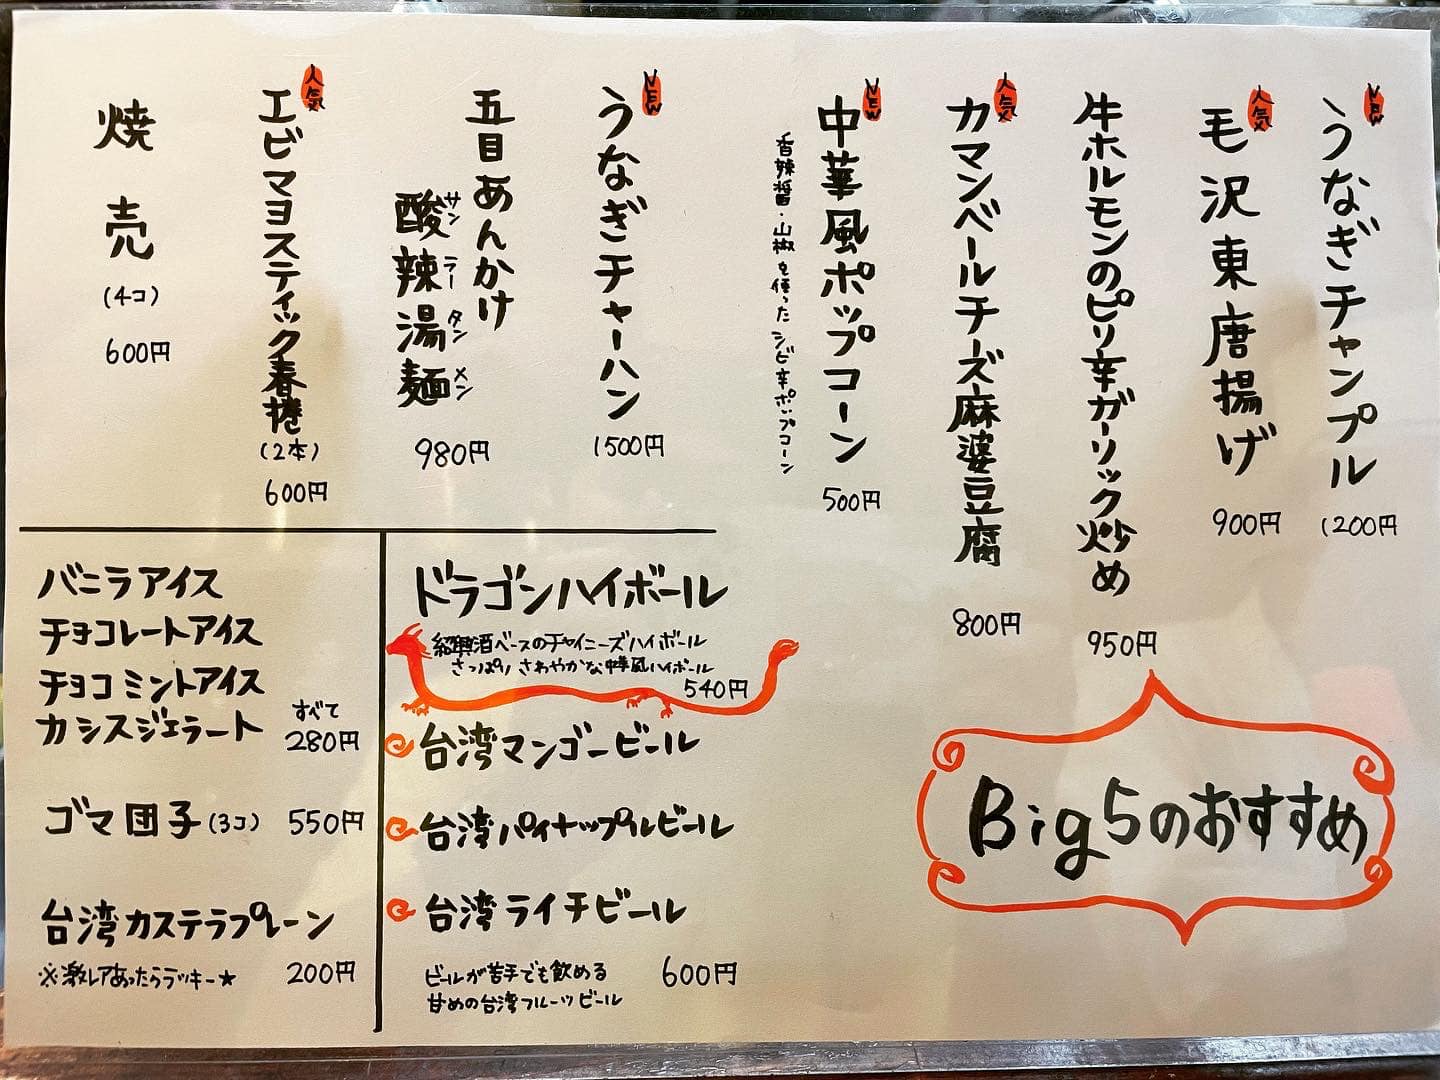 NEW
うなぎチャンプル
1200円
人気
毛沢東唐揚げ
900円
牛ホルモンのピリ辛ガーリック炒め
950円
人気
カマンベールチーズ麻婆豆腐
800円
NEW
中華風ポップコーン
香辣醤・山椒を使ったシビ辛ポップコーン
500円
NEW
うなぎチャーハン
1500円
五目あんかけ
酸辣湯麺
サンラータンメン
980円
人気
エビマヨスティック春捲
(2本)
600円
焼売
(4コ)
600円
Big5のおすすめ
ドラゴンハイボール
紹興酒ベースのチャイニーズハイボール
さっぱり さわやかな中華風ハイボール
540円
台湾マンゴービール
台湾パイナップルビール
台湾ライチビール
ビールが苦手でも飲める
甘めの台湾フルーツビール
600円
バニラアイス
チョコレートアイス
チョコミントアイス
カシスジェラート
すべて
280円
ゴマ団子(3コ) 550円
台湾カステラプレーン
※激レアあったらラッキー★ 200円